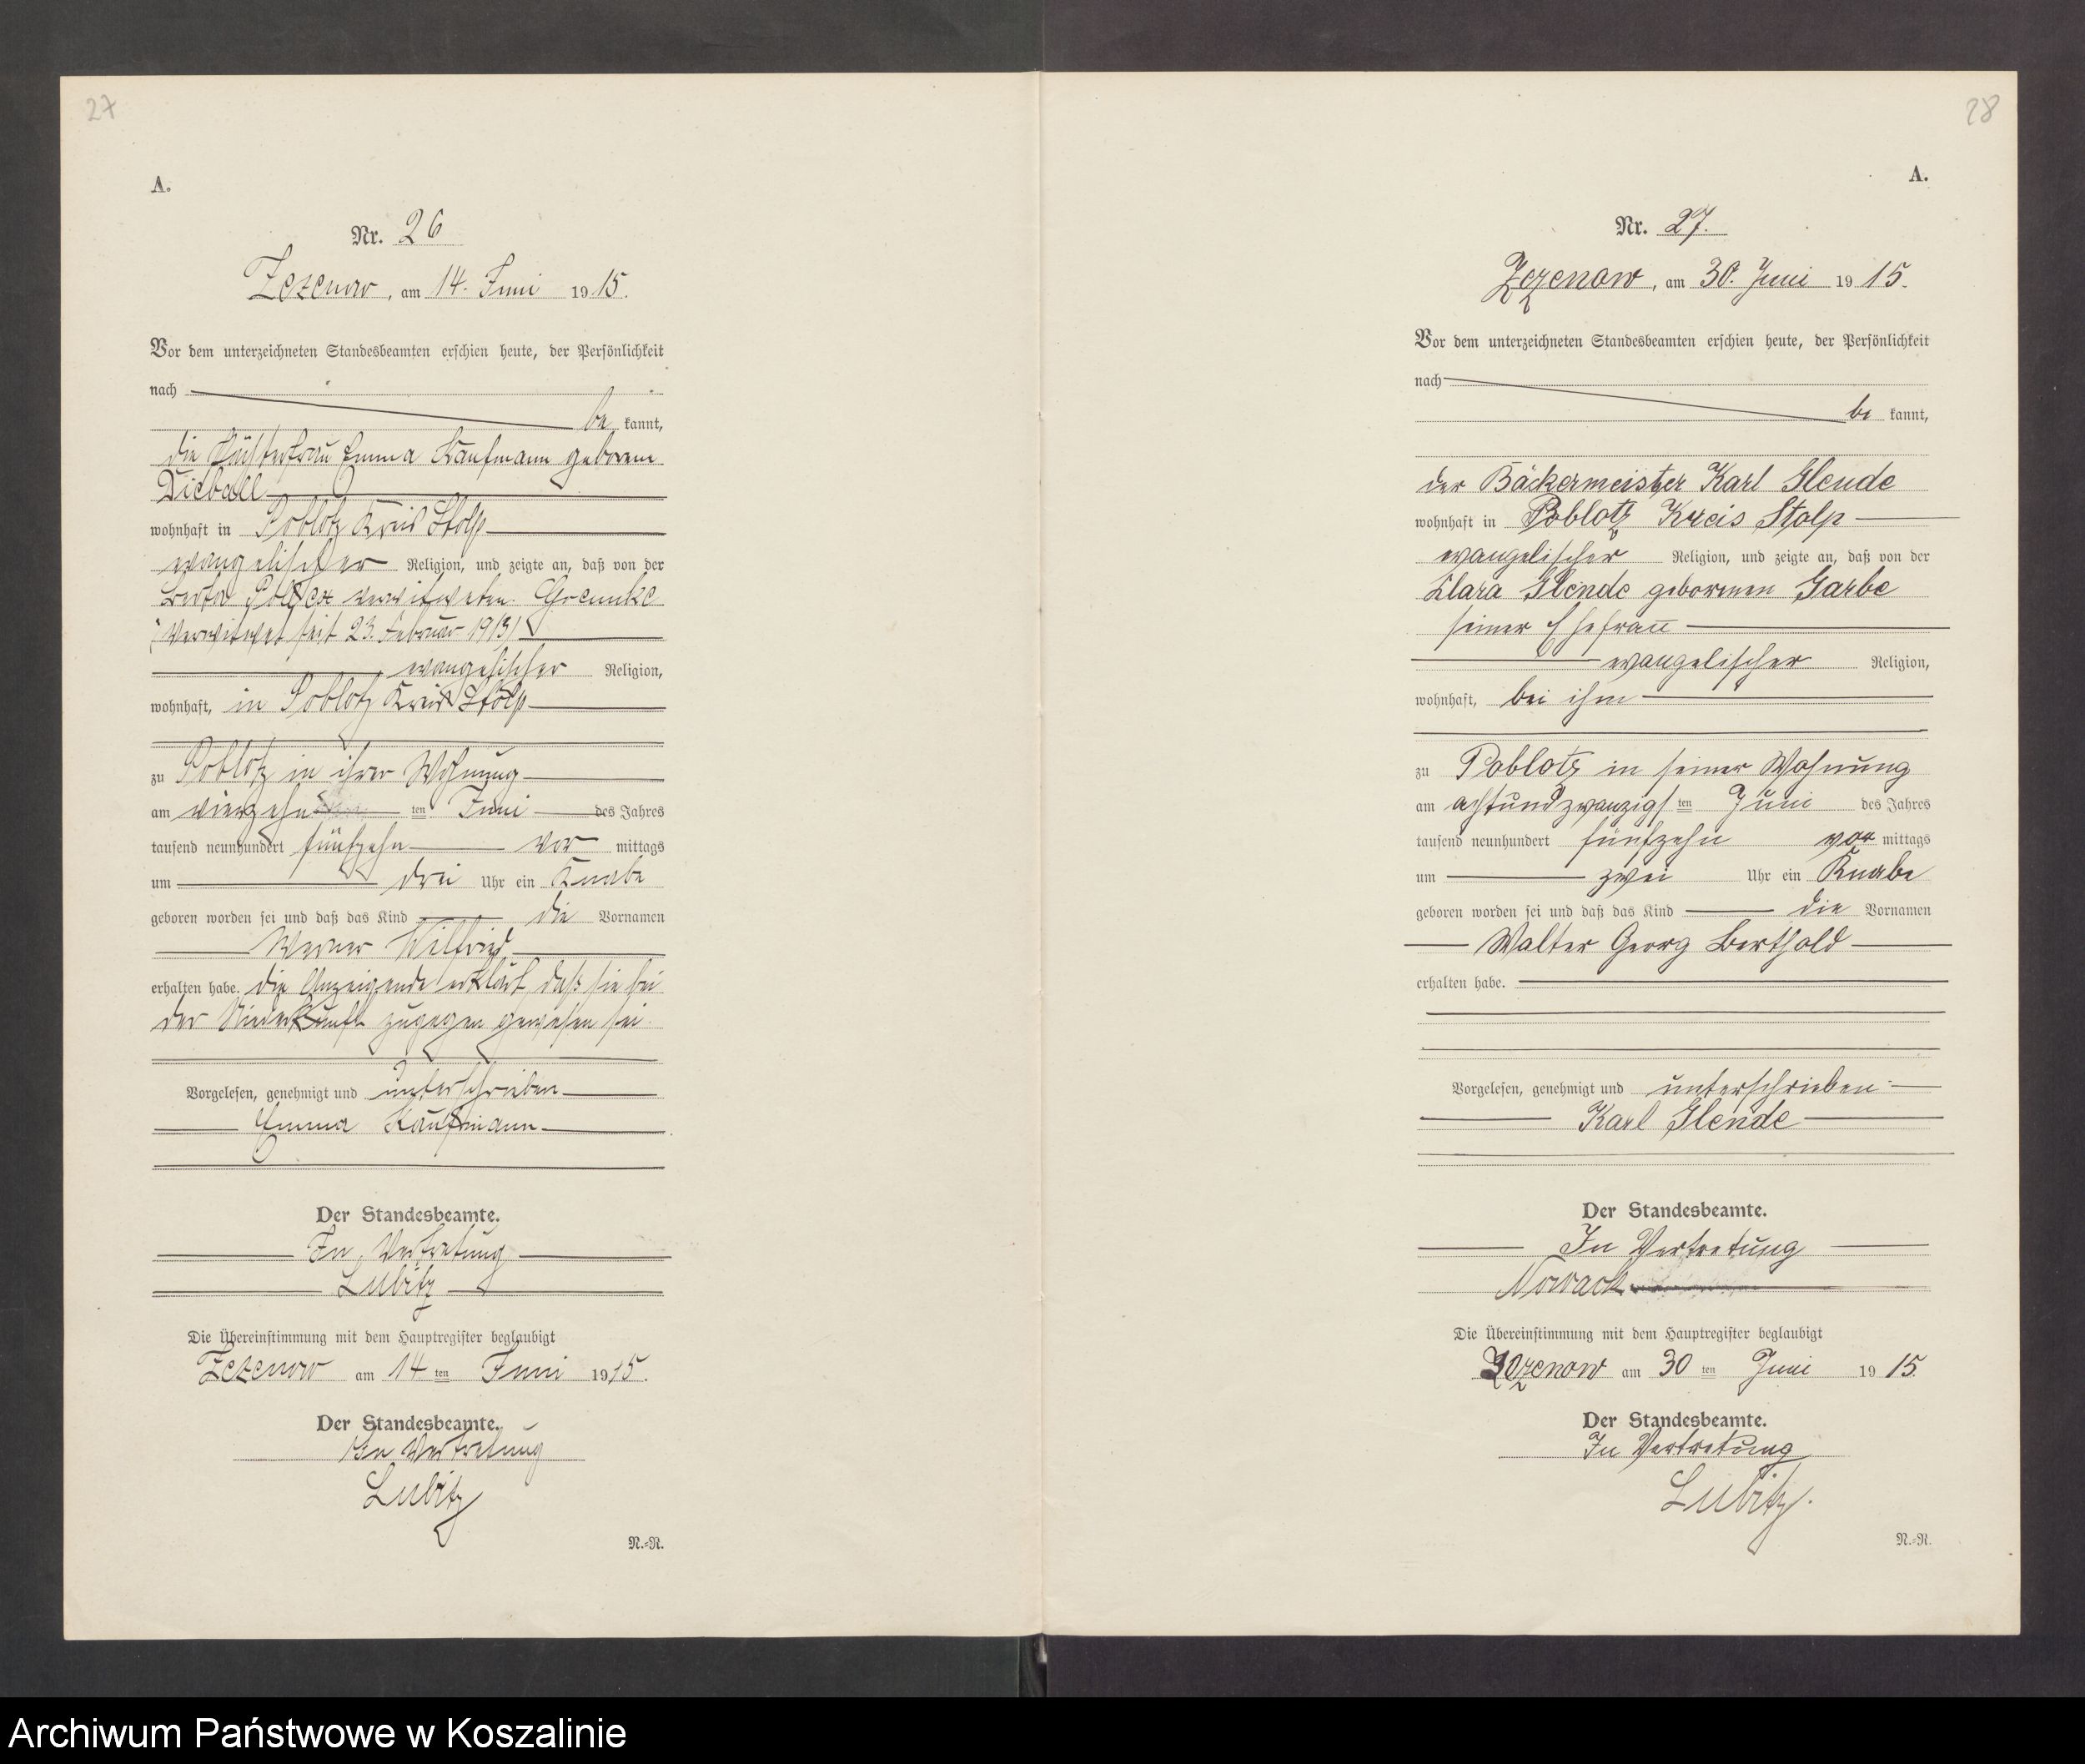 27
A.
Nr. 26
Zezenow, am 14. Juni 1915.
Vor dem unterzeichneten Standesbeamten erschien heute, der Persönlichkeit
nach
be kannt,
die Emma Kaufmann geborene
Dieball
wohnhaft in Poblotz Kreis Stolp
evangelischer Religion, und zeigte an, daß von der
Berta verwitweten
(Verwitwet seit 23. Februar 1913)
evangelischer Religion,
wohnhaft, in Poblotz Kreis Stolp
zu Poblotz in ihrer Wohnung
am vierzehn ten Juni des Jahres
tausend neunhundert fünfzehn vor mittags
um drei Uhr ein Knabe
geboren worden sei und daß das Kind die Vornamen
Werner Wilfried
erhalten habe. Die Anzeigende erklärt, daß sie bei
der Niederkunft zugegen gewesen sei.
Vorgelesen, genehmigt und unterschrieben
Emma Kaufmann
Der Standesbeamte.
In Vertretung
Lubitz
Die Übereinstimmung mit dem Hauptregister beglaubigt
Zezenow am 14 ten Juni 1915.
Der Standesbeamte.
In Vertretung
Lubitz
N.-R.
28
A.
Nr. 27.
Zezenow, am 30. Juni 1915.
Vor dem unterzeichneten Standesbeamten erschien heute, der Persönlichkeit
nach
be kannt,
der Bäckermeister Karl Glende
wohnhaft in Poblotz Kreis Stolp
evangelischer Religion, und zeigte an, daß von der
Klara Glende geborenen Garbe
seiner Ehefrau
evangelischer Religion,
wohnhaft, bei ihm
zu Poblotz in seiner Wohnung
am achtundzwanzigs ten Juni des Jahres
tausend neunhundert fünfzehn vor mittags
um zwei Uhr ein Knabe
geboren worden sei und daß das Kind die Vornamen
Walter Georg Berthold
erhalten habe.
Vorgelesen, genehmigt und unterschrieben
Karl Glende
Der Standesbeamte.
In Vertretung
Nowack
Die Übereinstimmung mit dem Hauptregister beglaubigt
Zezenow am 30 ten Juni 1915.
Der Standesbeamte.
In Vertretung
Lubitz.
N.-R.
Archiwum Państwowe w Koszalinie